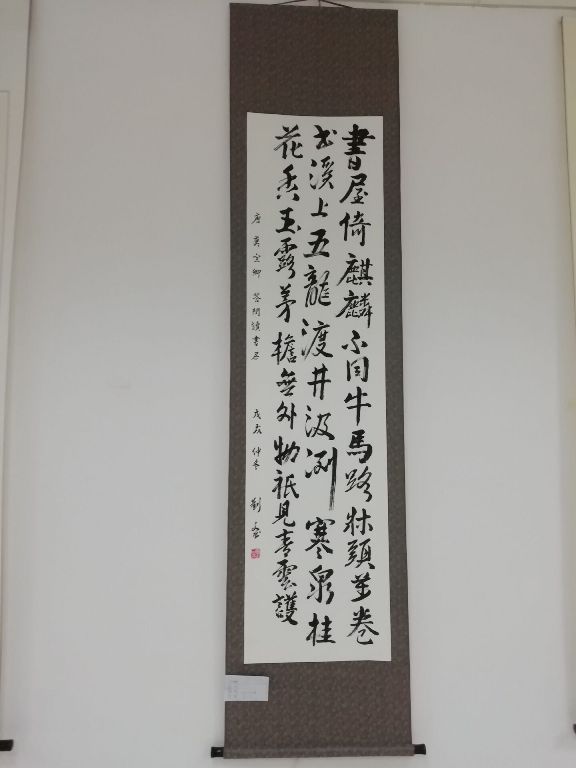 書屋倚麒麟不同牛馬路牀頭萬卷
书溪上五龍渡井汲洌寒泉桂
花香玉露茅檐無外物祇見青雲護
唐 莫宣卿 答問讀書居 戊戌 仲冬 劉